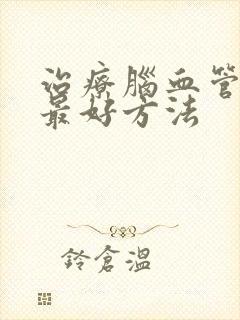 治療腦血管
最好方法
鈴倉溫